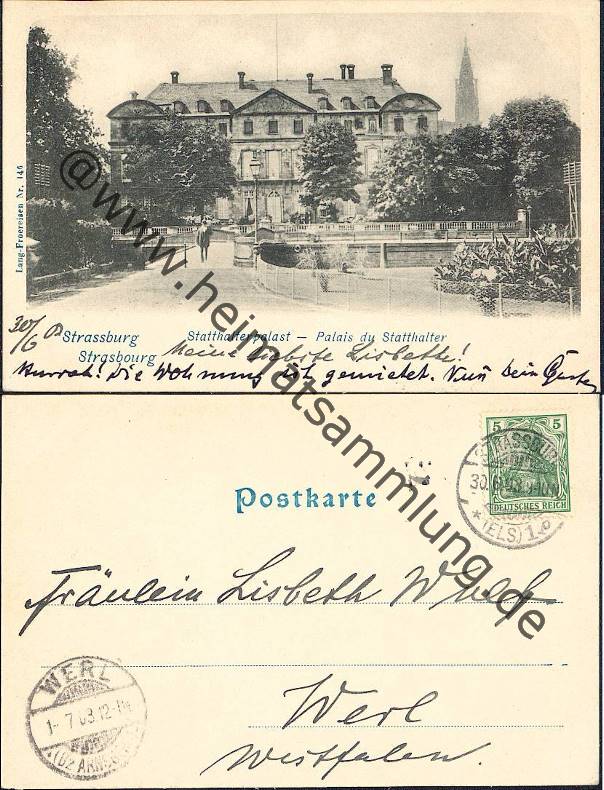 Lang-Froereisen Nr. 146
30/6 03
Strassburg
Strasbourg
Statthalterpalast — Palais du Statthalter
Meine liebste Lisbeth!
Hurrah! Die Wohnung ist gemietet. Nun Dein
@www.heimatsammlung.de
5 5
DEUTSCHES REICH
STRASSBURG
30.6.03.9-10
* (ELS) 1
Postkarte
Fräulein Lisbeth
Werl
Westfalen.
WERL
1-7 03 12-1N
(BZ ARNSBERG)